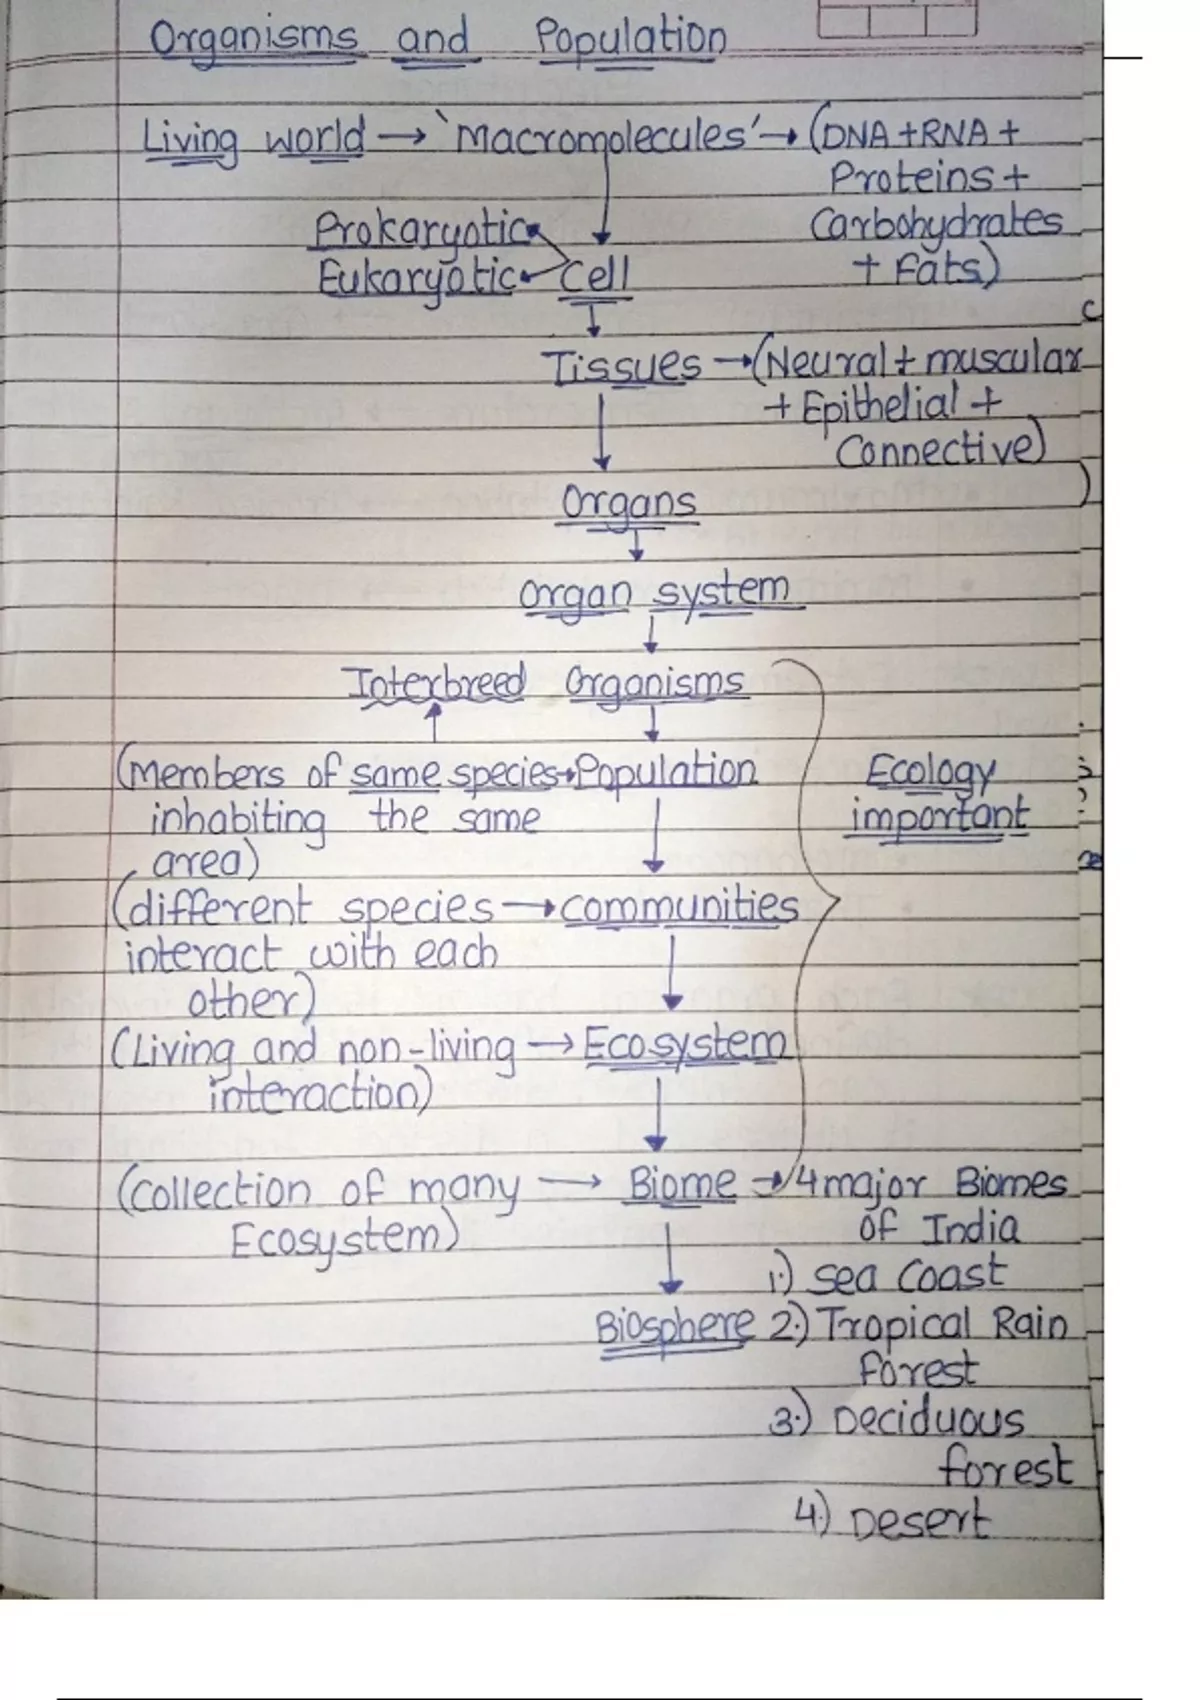 Organisms and Population
Living world → 'Macromolecules' → (DNA+RNA+
Proteins+
Carbohydrates
+ Fats)
Prokaryotic
Eukaryotic
Cell
Tissues → (Neural + muscular
+ Epithelial +
Connective)
Organs
Organ system
Interbreed Organisms
(Members of same species → Population
inhabiting the same
area)
Ecology
important
(different species → communities
interact with each
other)
(Living and non-living → Ecosystem
interaction)
(collection of many → Biome → 4 major Biomes
Ecosystem)
of India
1.) Sea Coast
Biosphere 2.) Tropical Rain
Forest
3.) Deciduous
forest
4.) Desert